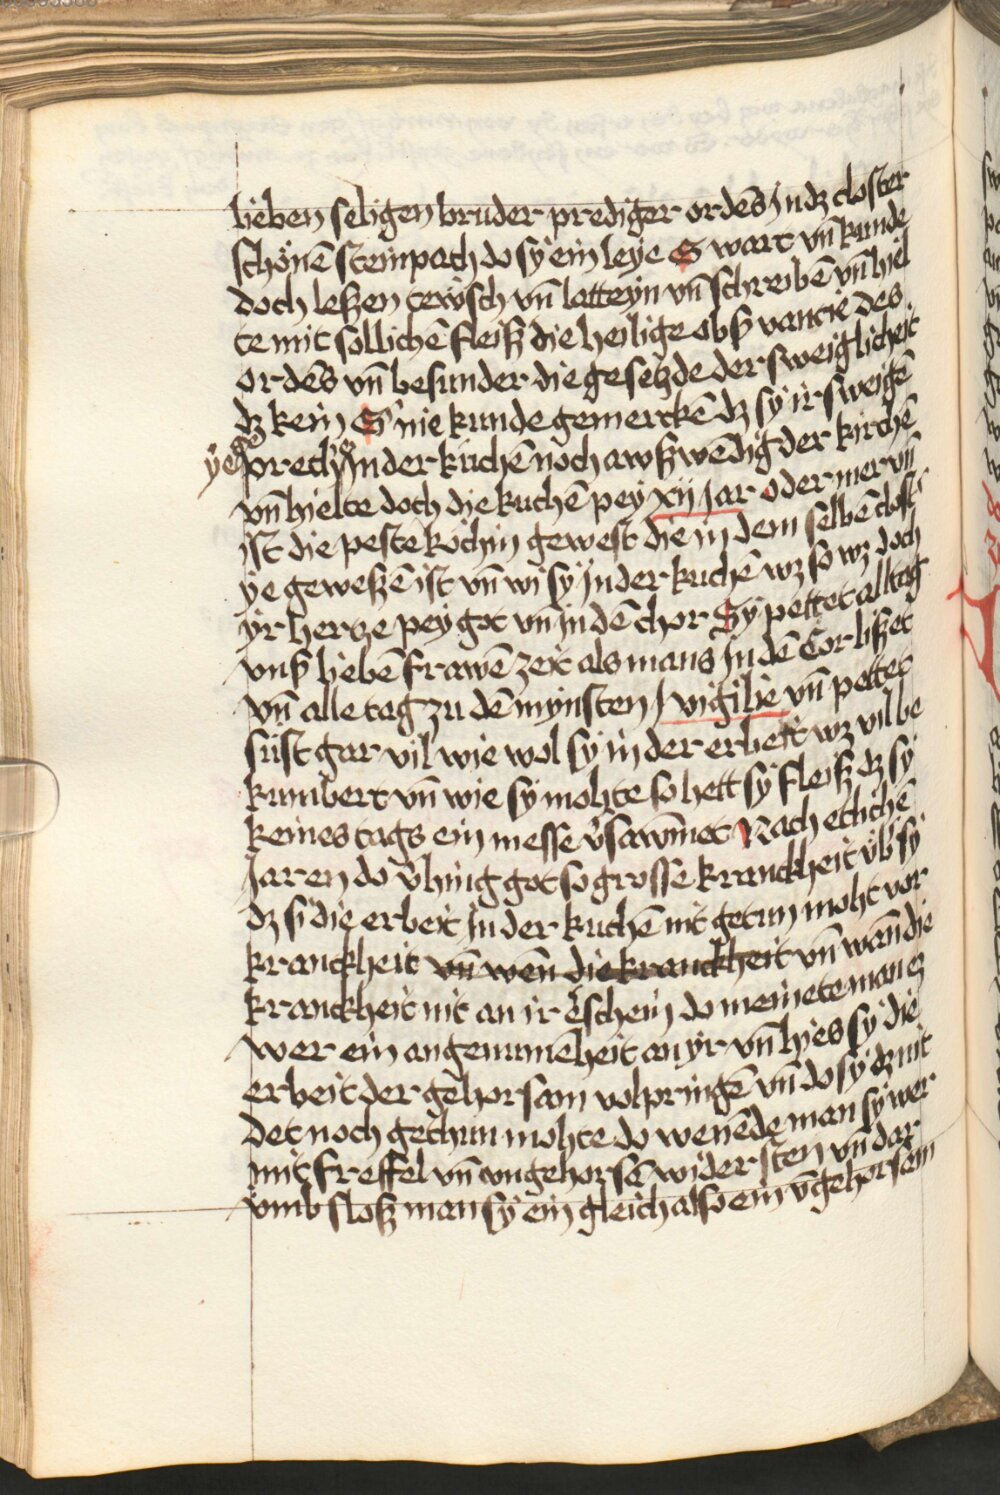 lieben seligen bruder prediger ordēs Jn dz closter
schönē steinpach do sy ein leye S wart vn̄ kunde
doch leßen tewtsch vn̄ latteyn vn̄ schreibē vn̄ hiel
te mit sollichē fleiß die heilige obßvancie des
ordēs vn̄ besunder die gesetzde der sweiglicheit
dz kein S nie kunde gemerckē dz sy ir sweigē
ye geprech Jn der kuchē noch awßwēdig der kirchē
vn̄ hielte doch die kuchē pey xij Jar oder mer vn̄
ist die peste köchin gewest die in dem selbē clost
ye geweßē ist vn̄ wi sy Jn der kuchē wz so wz doch
yr hertze pey got vn̄ Jn dē chor Sy pettet alltag
vnß liebē frawē zeit als mans Jn dē Cor lißet
vn̄ alle tag zu dē mynsten j vigilie vn̄ pettet
sust gar vil wie wol sy in der erbeit wz vil be
kumbert vn̄ wie sy mohte so hett sy fleiß dz sy
keines tags ein messe v̓sawmet Nach etlichē
Jaren do v̓hing got so grosse kranckheit vb̓ sy
dz si die erbeit Jn der kuchē nit getun moht vor
kranckheit vn̄ wen̄ die kranckheit vn̄ wan̄ die
kranckheit nit an ir erschein do meinete man ez
wer ein angenumēheit an yr vn̄ hies sy die
erbeit der gehorsam volpringē vn̄ do sy dz nit
det noch gethun mohte do wenēde man sy wer
mit freffel vn̄ vngehorsē widersten vn̄ dar
vmb sloß man sy ein gleich also ein v̄gehorsam